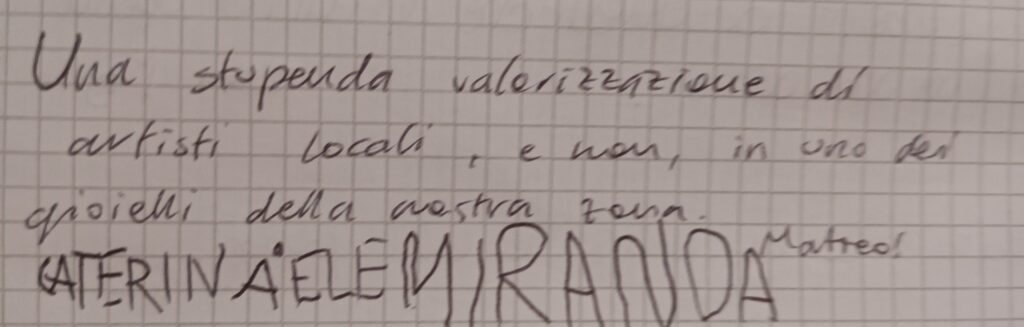 Una stupenda valorizzazione di
artisti locali, e non, in uno dei
gioielli della nostra zona.
CATERINA ELE MIRANDA